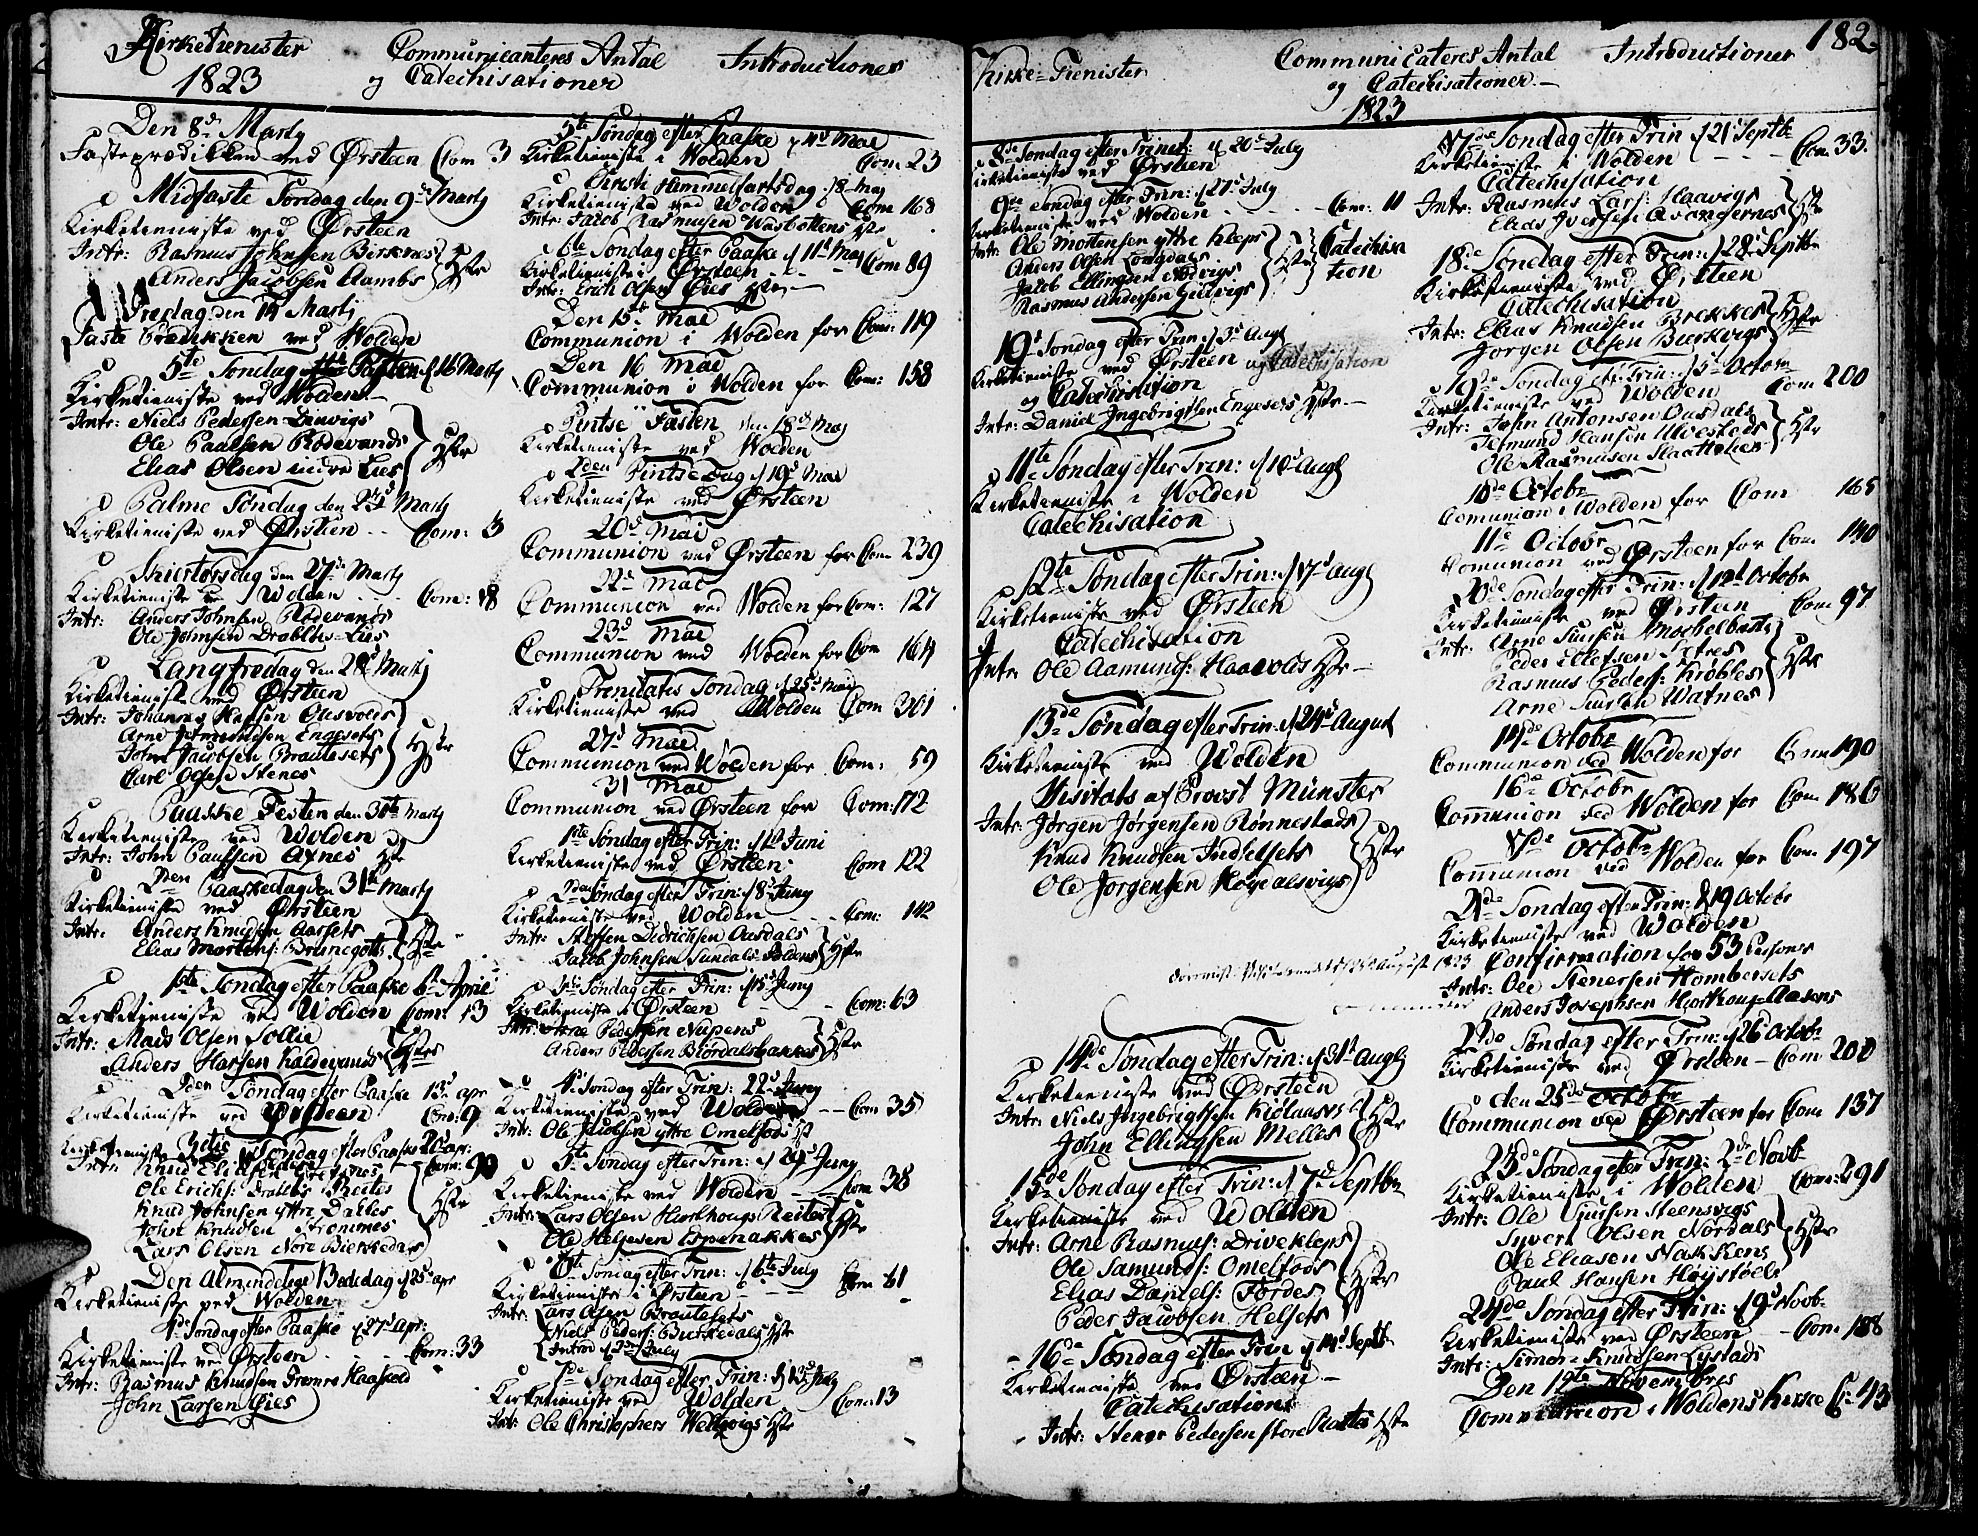 Kirketienister
1823
Communicanteres Antal
og Catechisationer
Introductioner
Den 8de Martj
Fasteprædikken ved Ørsteen Com 3
Midfaste Søndag den 9de Martj
Kirketieniste ved Ørsteen
Intr: Rasmus Johnsen Birknes
Anders Jacobsen Aambs Hstr
Fredag den 14 Martj
Faste Prædikken ved Wolden
5te Søndag 16 Martj
Kirketieniste ved Wolden
Intr: Niels Pedersen
Ole Paulsen Rødevands
Elias Olsen indre Lies Hstr
Palme Søndag den 23de Martj
Kirketieniste ved Ørsteen Com: 3
Skiertorsdag den 27de Martj
Kirketieniste ved Wolden Com: 18
Intr: Anders Johnsen Rødevands
Ole Johnsen Drabløs-Lies
Langfredag den 28de Martj
Kirketieniste ved Ørsteen
Intr: Johannes Hansen
Arne Engesets
John Jacobsen Brautesets
Carl Olsen Stenes Hstr
Paaske Festen den 30te Martj
Kirketieniste ved Wolden
Intr: John Paulsen Axnes Hstr
2den Paaskedag den 31te Martj
Kirketieniste ved Ørsteen
Intr: Anders Knudsen Aarsets
Elias Mortens: Brunegots Hstr
1ste Søndag efter Paaske 6te April
Kirketieniste ved Wolden Com: 13
Intr: Mads Olsen Sollie
Anders Hansen Kaldevands Hstr
2den Søndag efter Paaske 13de apr
Kirketieniste ved Ørsteen Com: 9
Kirketieniste 3die Søndag efter Paaske 20de apr:
Intr: Knud Com: 90
Ole Erichs: Drabløs Reites
Knud Johnsen yttre Dalles
John Knudsen Strømmes
Lars Olsen Nore Bierkedals Hstr
Den Almindelige Bededag 25de apr
Kirketieniste ved Wolden
4de Søndag efter Paaske 27de apr:
Kirketieniste ved Ørsteen Com: 33
Intr: Rasmus Knudsen
John Larsen Øies
5te Søndag efter Paaske 4de Mai
Kirketieniste i Wolden Com 23
Christi Himmelfartsdag: 8 Maj
Kirketieniste ved Wolden Com 168
Intr: Jacob Rasmusen Wasbottens Hstr
6te Søndag efter Paaske 11te Maj
Kirketieniste i Ørsteen Com 89
Intr: Erich Olsen Øies Hstr
Den 15de Mai
Communion i Wolden for Com: 119
Den 16 Mai
Communion i Wolden for Com: 158
Pintse Fasten den 18de Maj
Kirketieniste ved Wolden
2den Pintse Dag 19de Mai
Kirketieniste ved Ørsteen
20de Mai
Communion ved Ørsteen for Com 239
22de Mai
Communion ved Wolden for Com: 127
23de Mai
Communion ved Wolden for Com 164
Trenitatis Søndag 25de Mai
Kirketieniste ved Wolden Com 301
27de Mai
Communion ved Wolden for Com: 59
31 Mai
Communion ved Ørsteen for Com: 172
1ste Søndag efter Trin: 1st Juni
Kirketieniste ved Ørsteen Com 122
2den Søndag efter Trin: 8de Juny
Kirketieniste ved Wolden Com: 142
Intr: Steffen Didrichsen Aasdals
Jacob Johnsen Sundals-Holdens Hstr
3die Søndag efter Trin: 15de Juny
Kirketieniste i Ørsteen Com: 63
Intr: Arne Pedersen Nupens
Anders Pedersen Biørdalsbakkes Hstr
4de Søndag efter Trin: 22de Juny
Kirketieniste ved Wolden Com 35
Intr: Ole Jacobsen yttre Omelfods Hst
5te Søndag efter Trin: 29de Juny
Kirketieniste ved Wolden Com 38
Intr: Lars Olsen Hiorthougs Reites
Ole Helgesen Espenakkes Hstr
6te Søndag efter Trin: 6te July
Kirketieniste i Ørsteen Com 61
Intr: Lars Olsen Brautesets
Niels Peders: Birkedals Hstr
Introd July
7de Søndag efter Trin: 13de July
Kirketieniste ved Wolden Com: 13
Intr: Ole Christophers Welsvigs Hstr
Kirke-Tienister
Communicateres Antal
og Catechisationer.
1823
Introductioner
182
8de Søndag efter Trinit: 20de July
Kirketieniste ved Ørsteen
9de Søndag efter Trin: 27de July
Kirketieniste ved Wolden Com: 11
Intr: Ole Mortensen yttre Kleps
Anders Olsen Langdals
Jacob Ellingsen
Rasmus Andersen Hstr Catechisation
19de Søndag efter Trin: 3de Augt
Kirketieniste ved Ørsteen og Catechisation
og Catechisation
Intr: Daniel Ingebrigtsen Engesets Hstr
11te Søndag efter Trin: 10de Augt
Kirketieniste i Wolden
Catechisation
12te Søndag efter Trin: 17de Augt
Kirketieniste ved Ørsteen
Catechisation
Intr: Ole Aamunds: Haavolds Hstr
13de Søndag efter Trin: 24de August
Kirketieniste ved Wolden
Visitats af Provst Münster
Intr: Jørgen Jørgensen Rønnestads
Knud Knudsen Indselsets
Ole Jørgensen Høgealsvigs Hstr
August 1823
14de Søndag efter Trin: 31te Augt
Kirketieniste ved Ørsteen
Intr: Niels Ingebrigtsen
John Ellingsen Melles Hstr
15de Søndag efter Trin: 7de Septbr
Kirketieniste ved Wolden
Intr: Arne Rasmus: Drivekleps
Ole Samunds: Omelfods
Elias Daniels: Førdes
Peder Jacobsen Helsets Hstr
16de Søndag efter Trin 14de Septb
Kirketieniste ved Ørsteen
Catechisation
Intr: Stener Pedersen store Raates Hstr
17de Søndag efter Trin 21de Septbr
Kirketieniste i Wolden Com 33.
Catechisation
Intr: Rasmus Lars: Haavigs
Elias Iversen Avangernes Hstr
18de Søndag efter Trin: 28de Septbr
Kirketieniste ved Ørsteen
Catechisation
Intr: Elias Knudsen Brekkes
Jørgen Olsen Hstr
19de Søndag eftr Trin: 5te Octobr
Kirketieniste ved Wolden Com 200
Intr: John Antonsen Aasdals
Hansen
Ole Rasmusen Hstr
10de Octobr
Comunion i Wolden for Com 165
11te Octobr
Comunion ved Ørsteen for Com 140
20de Søndag efter Trin: 12te Octobr
Kirketieniste ved Ørsteen Com 97
Intr: Arne
Peder Ellefsen Sætres
Rasmus Peders: Krøbles
Arne Watnes Hstr
14de Octobr
Communion ved Wolden for Com 190
16de Octobr
Communion ved Wolden for Com 186
17de Octobr
Communion ved Wolden for Com 197
21de Søndag efter Trin: 19 Octobr
Kirketieniste ved Wolden
Confirmation for 53 Persons
Intr: Ole Stenersen Hombersets
Anders Josephsen Hiorthoug-Aasens
22de Søndag efter Trin: 26 Octobr
Kirketieniste ved Ørsteen Com 200
den 25de Octobr
Communion ved Ørsteen for Com 137
23de Søndag efter Trin: 2de Novb
Kirketieniste i Wolden Com: 291
Intr: Ole Steensvigs
Syvert Olsen Nordals
Ole Eliasen Nakkens
Paul Hansen Høystøels Hstr
24de Søndag efter Trin: 9de Novb
Kirketieniste ved Ørsteen Com 188
Intr: Simon Knudsen Lystads
Den 12te Novembris
Communion i Woldens Kirke C: 43